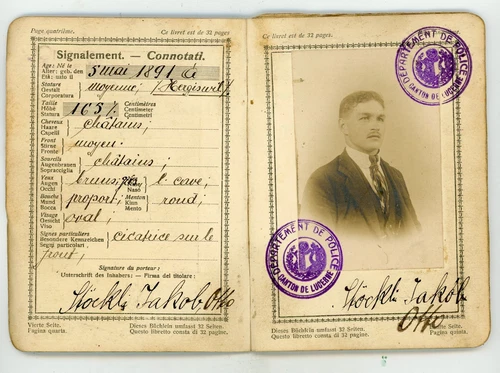 Page quatrième. Ce livret est de 32 pages
Signalement. — Connotati.
Age: Né le
Alter: geb. den 5 mai 1891
Età: nato il
Stature
Gestalt moyenne;
Corporatura
Taille Centimètres
Höhe 165 Centimeter
Statura Centimetri
Cheveux
Haare châtains;
Capelli
Front
Stirne moyen.
Fronte
Sourcils
Augenbrauen châtains;
Sopracciglia
Yeux
Augen bruns; Nez l. cave;
Occhi Naso
Bouche Menton
Mund proport; Kinn rond;
Bocca Mento
Visage
Gesicht oval;
Viso
Signes particuliers
Besondere Kennzeichen cicatrice sur le
Segni particolari
front,
Signature du porteur:
Unterschrift des Inhabers: — Firma del titolare:
Stöckli Jakob Otto
Vierte Seite. Dieses Büchlein umfasst 32 Seiten.
Pagina quarta. Questo libretto consta di 32 pagine.
Ce livret est de 32 pages
DÉPARTEMENT DE POLICE
CANTON DE LUCERNE
DÉPARTEMENT DE POLICE
CANTON DE LUCERNE
Stöckli Jakob
Otto
Dieses Büchlein umfasst 32 Seiten.
Questo libretto consta di 32 pagine.
Seite.
Pagina